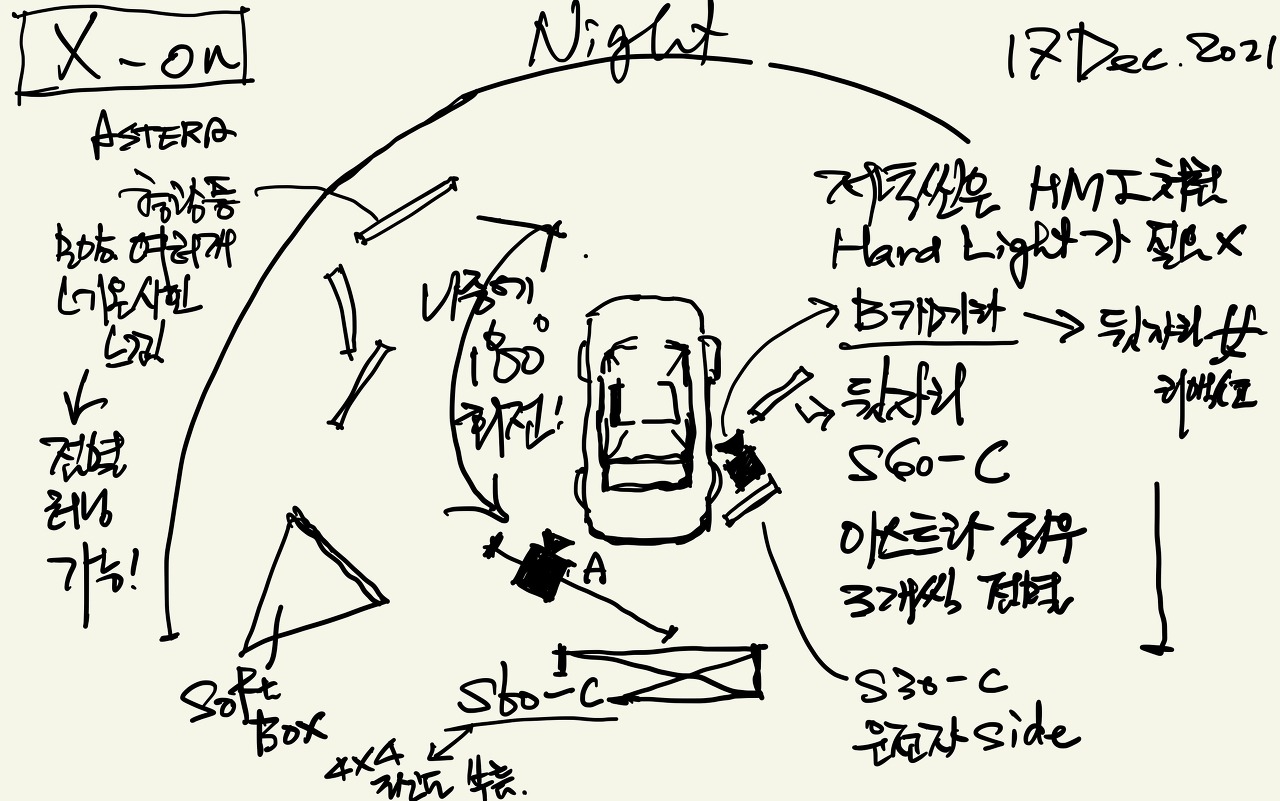 X-on
Night
17 Dec. 2021
ASTERA
형광등
여러개
네온사인
느낌
점멸
러닝
가능!
나중에
180°
회전!
HMI 처럼
Hard Light가 필요X
B카메라 → 뒷자리 女
리액션
뒷자리
S60-C
아스트라 좌우
3개씩 점멸
S30-C
운전자 side
A
S60-C
4x4
Soft
Box